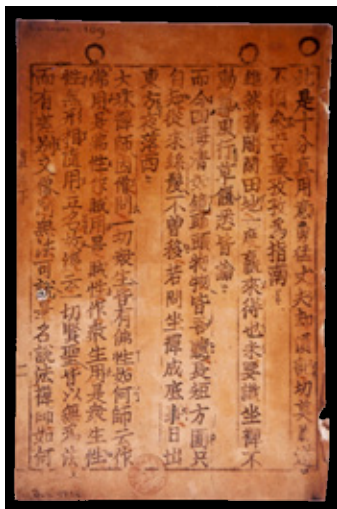 是十分直用意勇猛丈夫却須切莫
不聖教爲指南
縱然舊閣閑田地一度贏來得也未要識坐禪不
動尊更行草偃悉皆論
而今四海清如鏡頭頭物物皆吾聽長短方圓只
自知從來絲髮不曾移若問坐禪成底事日出
東方夜落西
大珠禪師因僧問一切衆生皆有佛性如何師云作
佛用是佛性作賊用是賊性作衆生用是衆生性
性無形相隨用立名故經云一切賢聖皆以無爲法
而有差別又僧問無法可說是名說法禪師如何